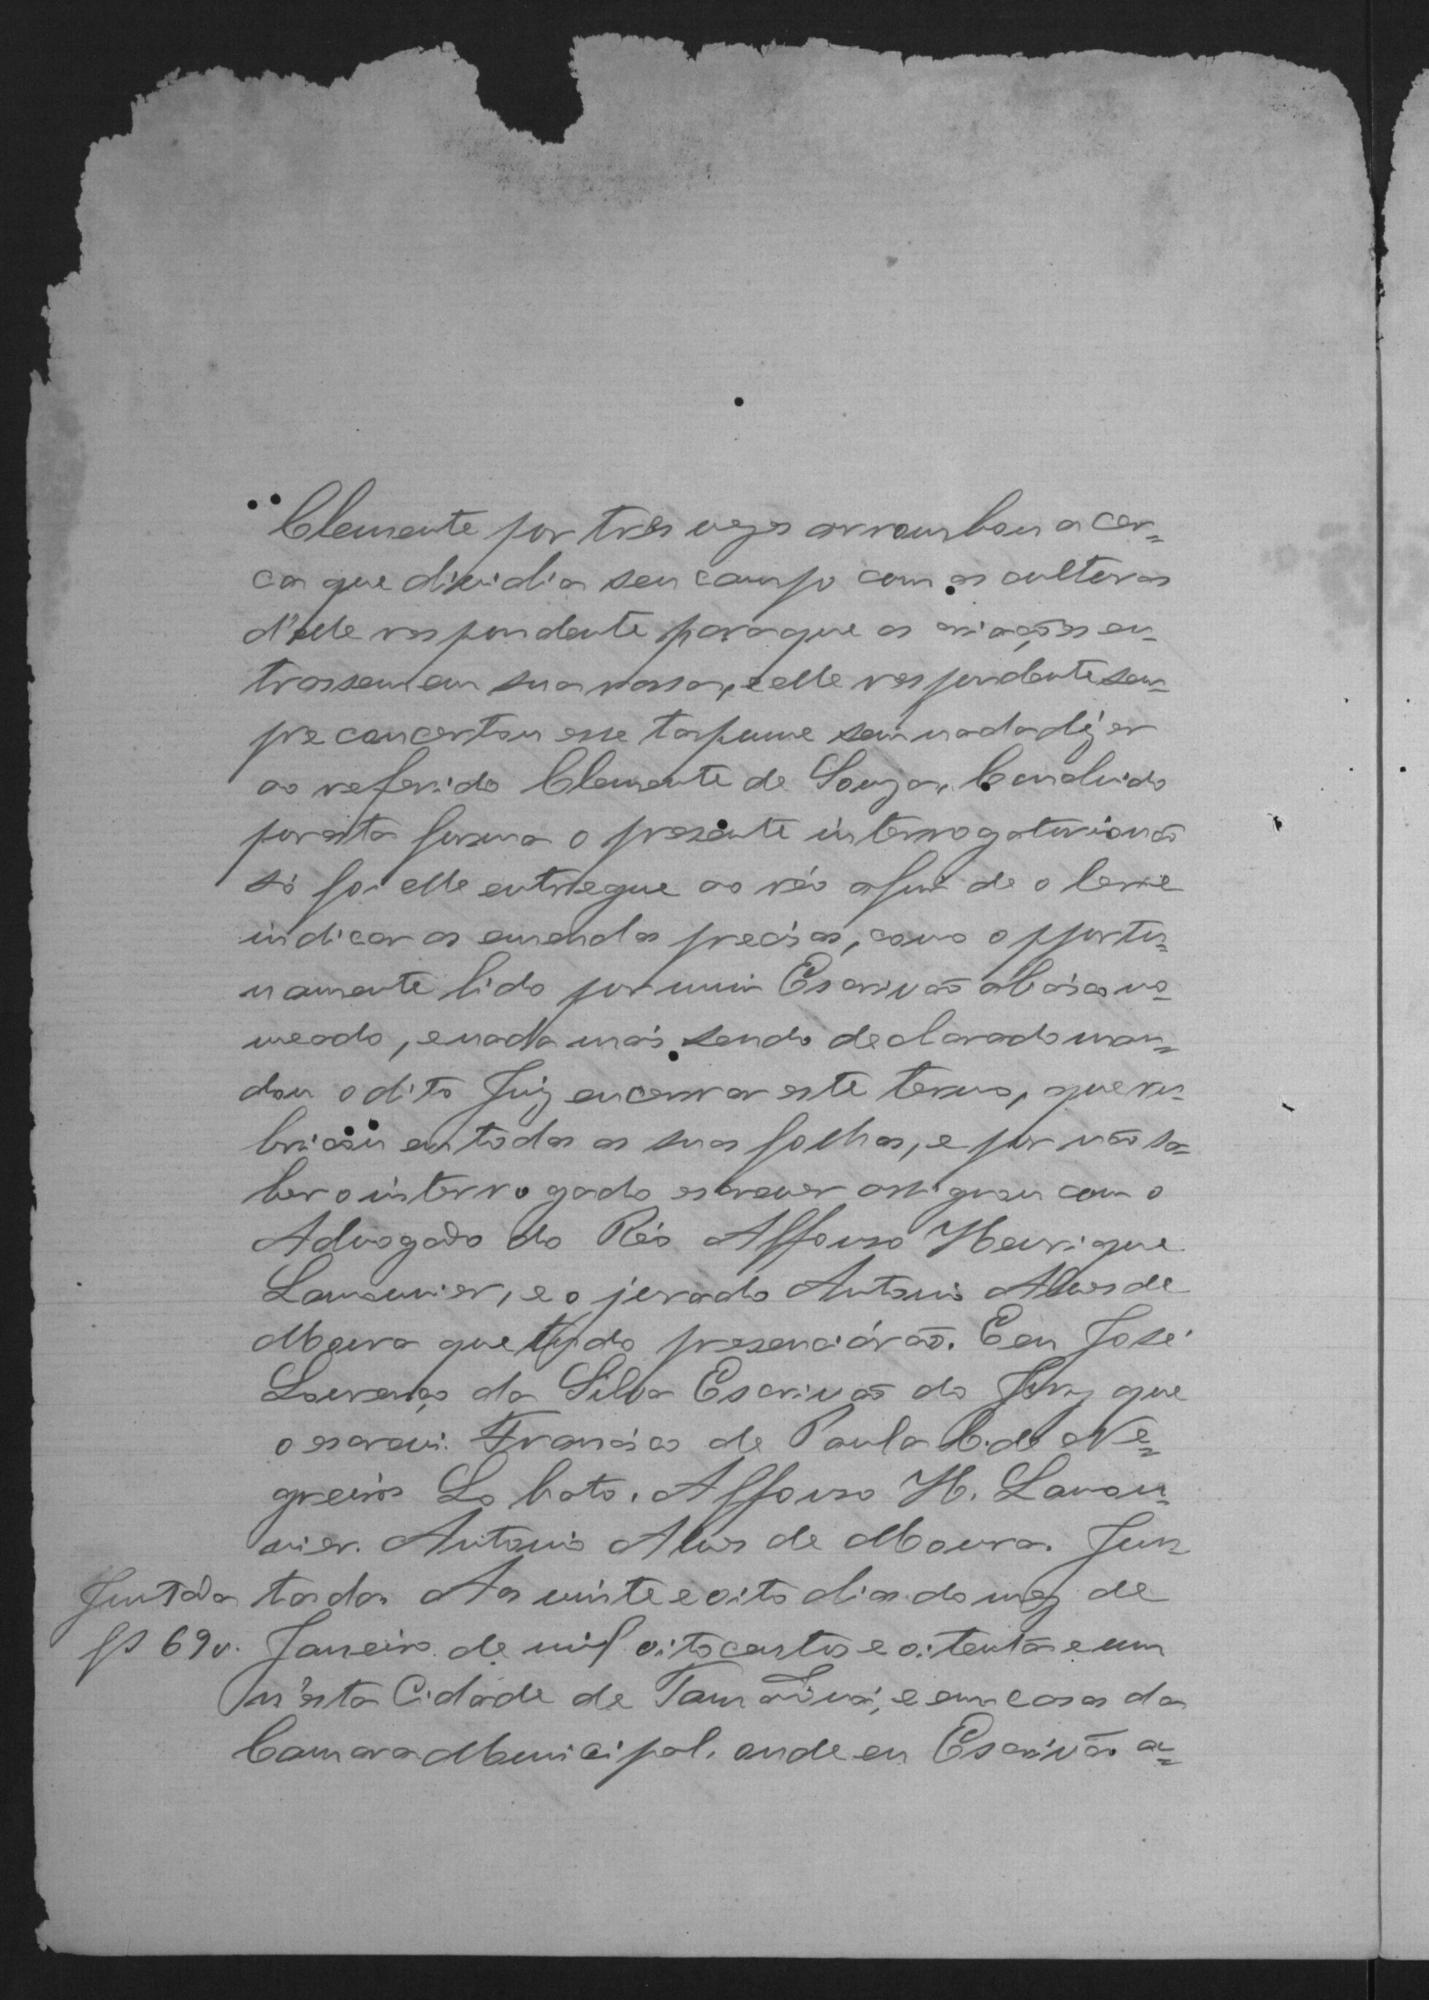 Clemente por tres vezes arrombou a cer=
ca que dividia seu campo com as culturas
d'elle respondente para que as criações en=
trassem em sua rossa, e elle respondente sem=
pre concertou esse tapume sem nada dizer
ao referido Clemente de Souza. Concluido
por esta forma o presente interrogatorio não
só foi elle entregue ao réo afim de o ler e
indicar as emendas precisas, como opportu=
namente lido por mim Escrivão abaixo no=
meado, e nada mais sendo declarado man=
dou o dito Juiz encerrar este termo, que ru=
bricou em todas as suas folhas, e por não sa=
ber o interrogado escrever assignou com o
Advogado do Réo Affonso Henrique
Lamounier, e o jurado Antonio Alves de
Moura que tudo presenciárão. E eu José
Lourenço da Silva Escrivão do Jury que
o escrevi. Francisco de Paula C. de Ne=
greiros Lobato. Affonso H. Lamou=
nier. Antonio Alves de Moura. Jun=
Juntada tada. Aos vinte e oito dias do mez de
fs 69v. Janeiro de mil oitocentos e oitenta e um
n'esta Cidade de Tamanduá, e em casas da
Camara Municipal, onde eu Escrivão a=